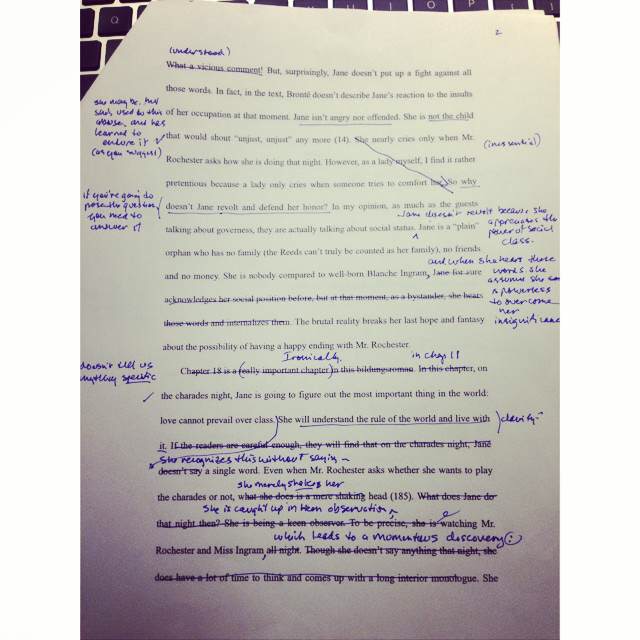 2
(understood)
What a vicious comment! But, surprisingly, Jane doesn't put up a fight against all
those words. In fact, in the text, Brontë doesn't describe Jane's reaction to the insults
of her occupation at that moment. Jane isn't angry nor offended. She is not the child
she may be, but
she's used to this
abuse, and has
learned to
endure it
(as you suggest)
that would shout "unjust, unjust" any more (14). She nearly cries only when Mr.
(inessential)
Rochester asks how she is doing that night. However, as a lady myself, I find it rather
pretentious because a lady only cries when someone tries to comfort her. So why
if you're going to
pose the question,
you need to
answer it
doesn't Jane revolt and defend her honor? In my opinion, as much as the guests
Jane doesn't revolt because she
appreciates the
power of social
class.
talking about governess, they are actually talking about social status. Jane is a "plain"
orphan who has no family (the Reeds can't truly be counted as her family), no friends
and when she hears those
words, she
assumes she
is powerless
to overcome
her
insignificance
and no money. She is nobody compared to well-born Blanche Ingram, Jane for sure
acknowledges her social position before, but at that moment, as a bystander, she hears
those words and internalizes them. The brutal reality breaks her last hope and fantasy
about the possibility of having a happy ending with Mr. Rochester.
doesn't tell us
anything specific
Ironically,
in chap 11
Chapter 18 is a really important chapter in this bildungsroman. In this chapter, on
the charades night, Jane is going to figure out the most important thing in the world:
love cannot prevail over class. She will understand the rule of the world and live with
clarify
it. If the readers are careful enough, they will find that on the charades night, Jane
She recognizes this without saying
doesn't say a single word. Even when Mr. Rochester asks whether she wants to play
she merely shakes her
the charades or not, what she does is a mere shaking head (185). What does Jane do
She is caught up in keen observation,
that night then? She is being a keen observer. To be precise, she is watching Mr.
which leads to a momentous discovery:
Rochester and Miss Ingram all night. Though she doesn't say anything that night, she
does have a lot of time to think and comes up with a long interior monologue. She